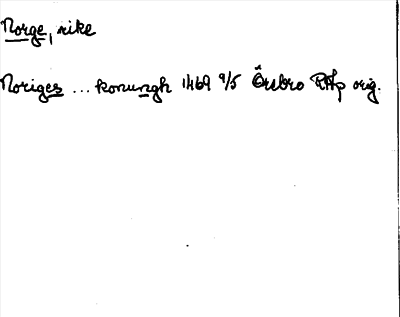 Norge, rike
Noriges ... konungh 1469 9/5 Örebro RAp orig.